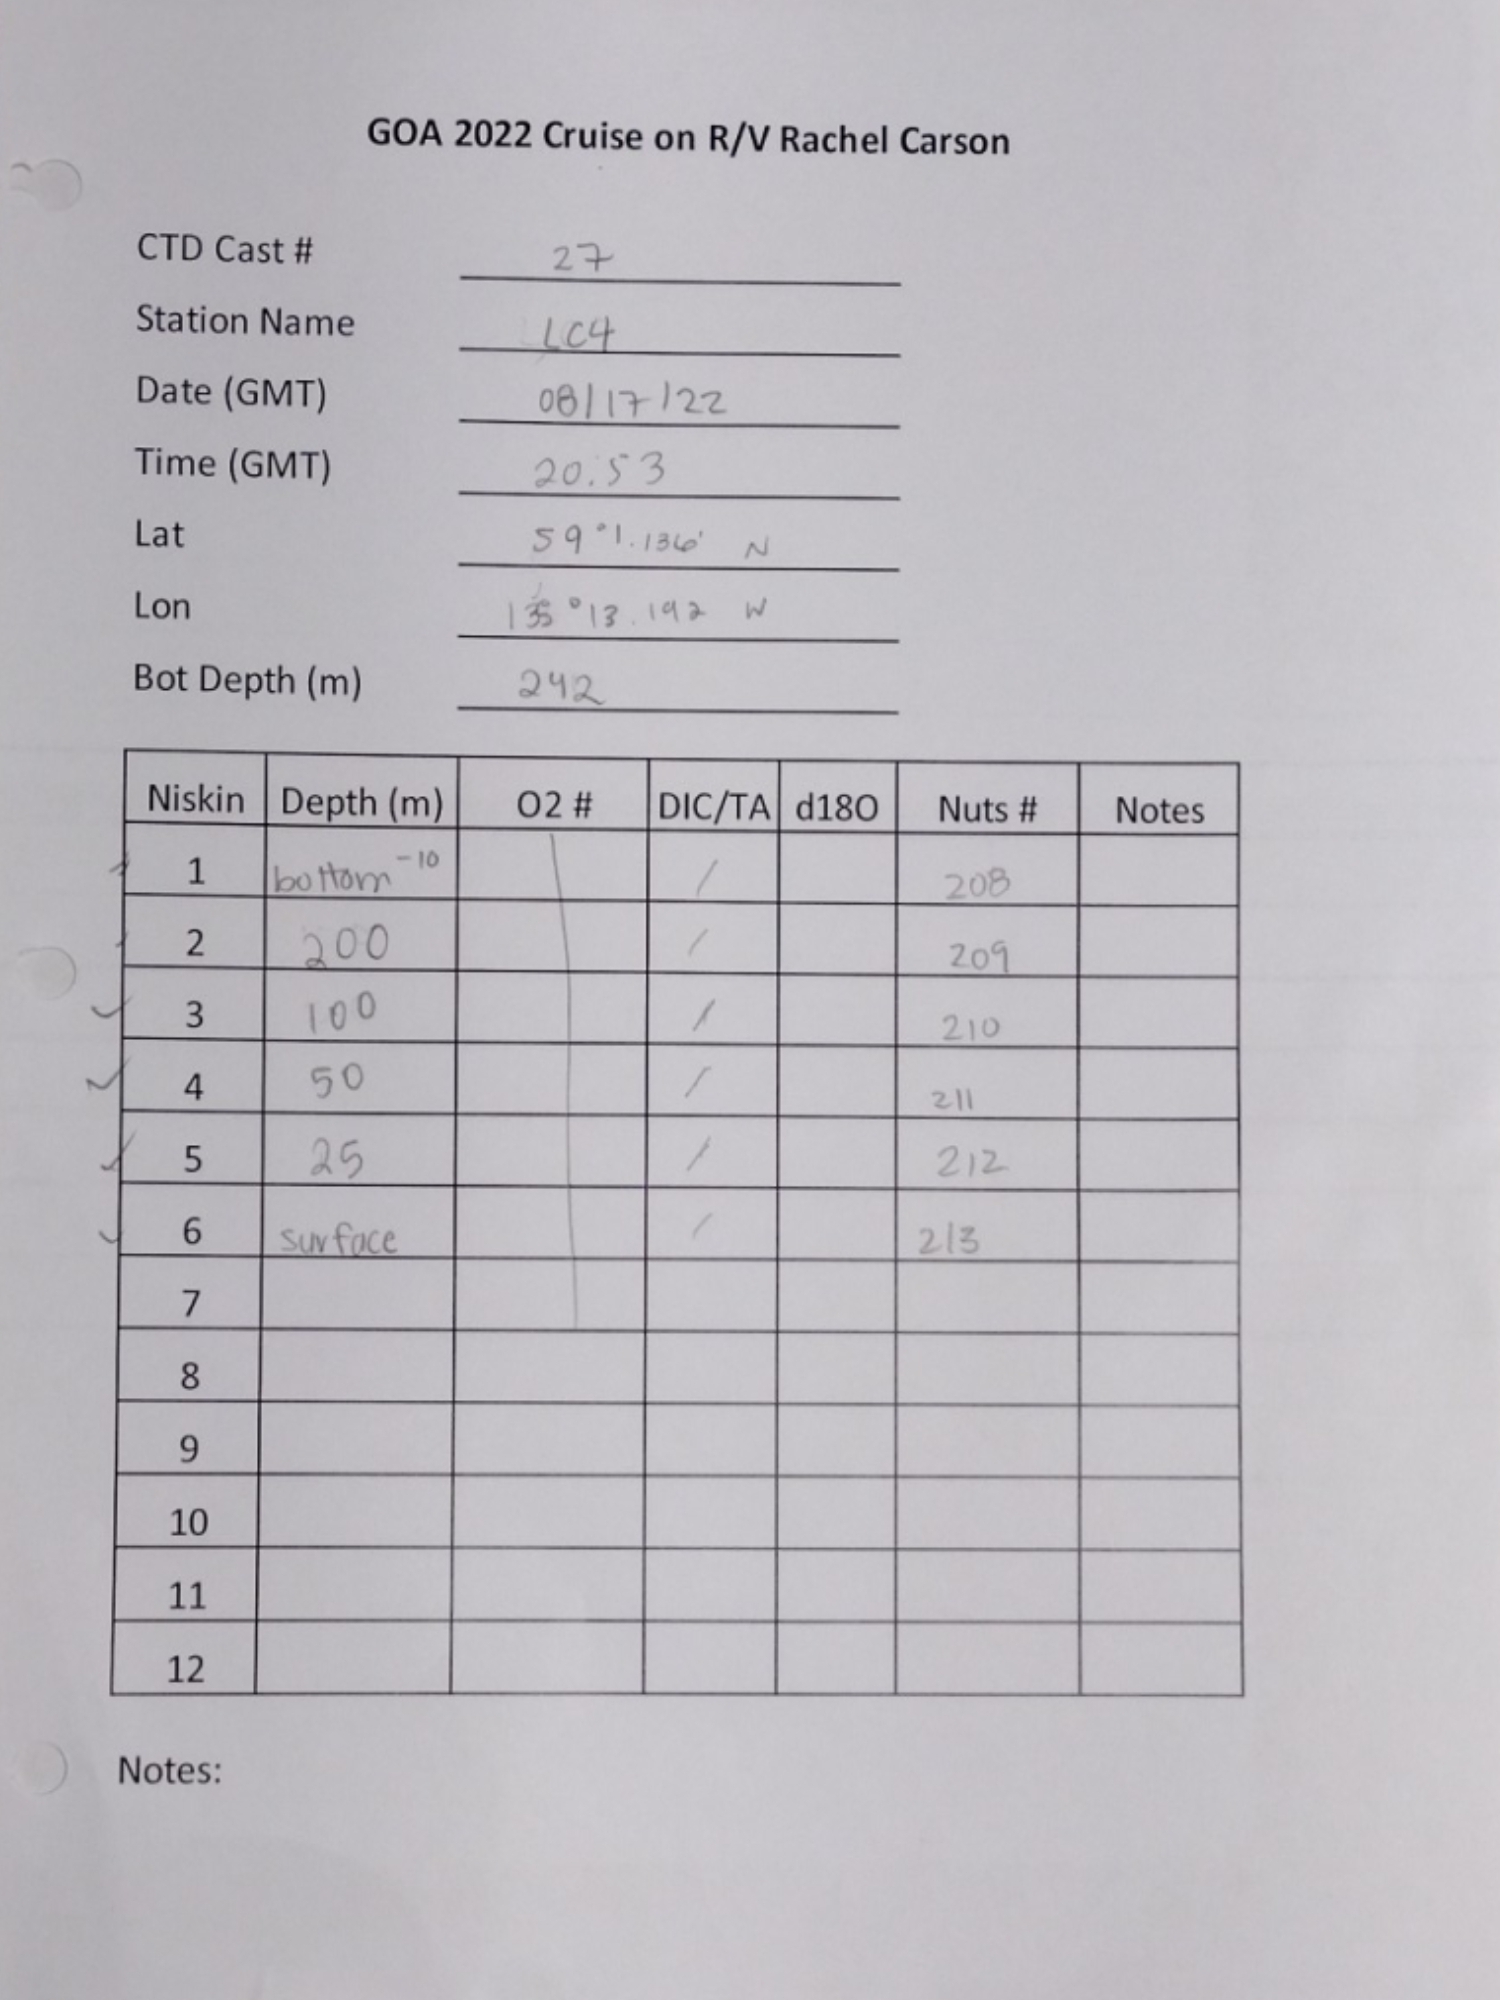 GOA 2022 Cruise on R/V Rachel Carson
CTD Cast # 27
Station Name LC4
Date (GMT) 08/17/22
Time (GMT) 20:53
Lat 59°1.136' N
Lon 135°13.192 W
Bot Depth (m) 242
Niskin Depth (m) O2 # DIC/TA d18O Nuts # Notes
1 bottom -10 / 208
2 200 / 209
3 100 / 210
4 50 / 211
5 25 / 212
6 surface / 213
7
8
9
10
11
12
Notes: